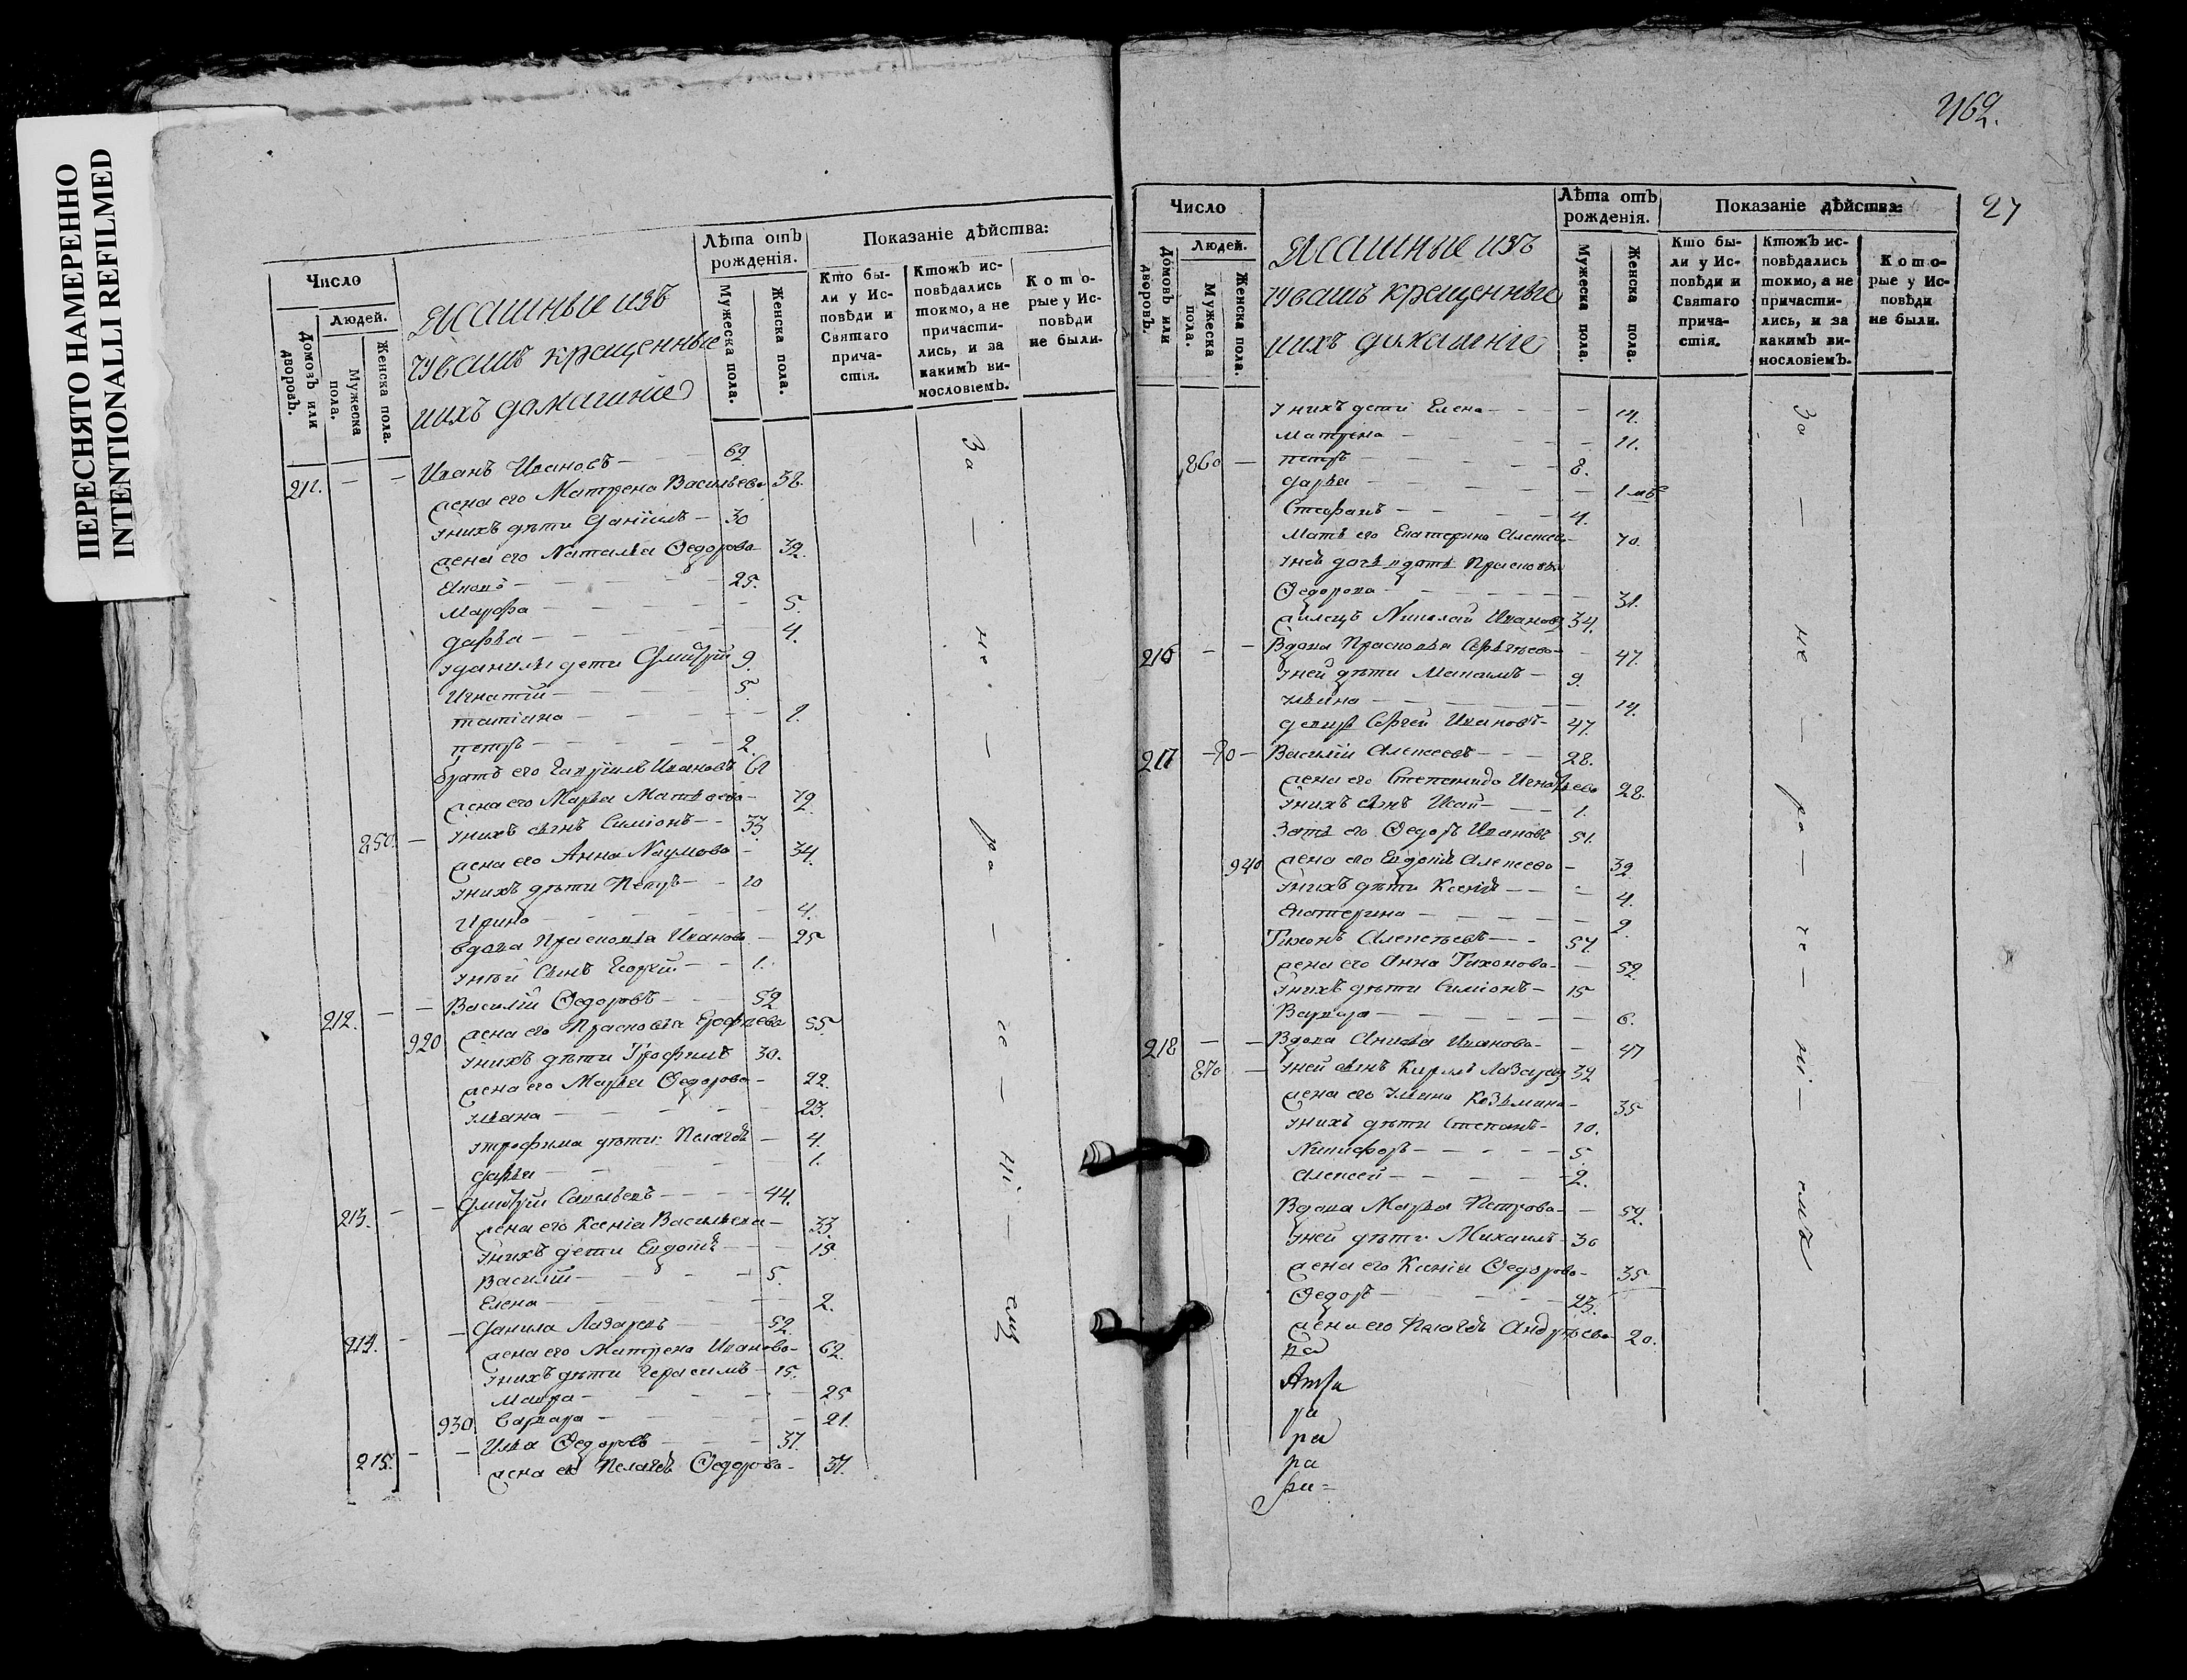 ПЕРЕСНЯТО НАМЕРЕННО
INTENTIONALLI REFILMED
Число
Людей.
Домовъ или дворовъ.
Мужеска пола.
Женска пола.
Ясашные изъ
чувашъ крещенные
и ихъ домашніе
Лѣта отъ рожденія.
Мужеска пола.
Женска пола.
Показаніе дѣйства:
Кто бы-
ли у Ис-
повѣди и
Святаго
прича-
стія.
Ктожъ ис-
повѣдались
токмо, а не
причасти-
лись, и за
какимъ ви-
нословіемъ.
Кото-
рые у Ис-
повѣди
не были.
211. — — Иванъ Ивановъ — 62
жена его Матрена Васильева 38.
у нихъ дѣти Даніилъ — 30
жена его Наталья Ѳедорова 32.
— 25.
Марфа — 5.
Дарья — 4.
у Данилы дети Дмитрій 9.
Игнатій — 5.
татіана — 1.
петръ — 2.
братъ его Гавріилъ Ивановъ 61
жена его Марья Матвѣева — 72
850. — у нихъ сынъ Симіонъ — 33.
жена его Анна Наумова — 34.
у нихъ дѣти Петръ — 10
Ирина — 4.
вдова Прасковья Иванова — 25
у ней сынъ Георгій — 1.
212. — — Василій Ѳедоровъ — 52
920 жена его Прасковья Ерофеева 55.
у нихъ дѣти Трофимъ 30.
жена его Марья Ѳедорова — 22.
Ульяна — 23.
у трофима дѣти: Пелагея — 4.
Дарья — 1.
213. — — Дмитрій Савельевъ — 44.
жена его Ксенія Васильева — 33.
у нихъ дети Евдокія — 15.
Василій — 5.
Елена — 2.
214. — — Данила Лазаревъ — 52.
жена его Матрена Иванова — 62.
у нихъ дѣти Герасимъ — 15.
Мавра — 25
930. Варвара — 21.
215. — — Илья Ѳедоровъ — 37.
жена ево Пелагея Ѳедорова — 37.
За — не — ра — че — ні —
462.
27
Число
Людей.
Домовъ или дворовъ.
Мужеска пола.
Женска пола.
Ясашные изъ
чувашъ крещенные
и ихъ домашніе
Лѣта отъ рожденія.
Мужеска пола.
Женска пола.
Показаніе дѣйства:
Кто бы-
ли у Ис-
повѣди и
Святаго
прича-
стія.
Ктожъ ис-
повѣдались
токмо, а не
причасти-
лись, и за
какимъ ви-
нословіемъ.
Кото-
рые у Ис-
повѣди
не были.
у нихъ дети Елена — 14.
Матрена — 11.
860 — петръ — 8.
Дарья —
Стефанъ — 4.
Мать его Екатерина Алексеева 70.
Прасковья
Ѳедорова — 31.
Николай Ивановъ 34.
216 — — Вдова Прасковья Сергѣева — 47.
у ней дѣти Максимъ — 9.
Ульяна — 14.
Сергей Ивановъ — 47.
217 — Василій Алексеевъ — 28.
жена его Степанида Игнатьева 28.
у нихъ сынъ Исай — 1.
Зять его Ѳедоръ Ивановъ 51.
940 жена его Евдокія Алексеева — 32
у нихъ дѣти Ксенія — 4.
Екатерина — 2.
Тихонъ Алексеевъ — 57
жена его Анна Тихонова — 52.
у нихъ дѣти Симіонъ — 15
Варвара — 6.
218 — — Вдова Анисья Иванова — 47
870 — у ней сынъ Кирилъ Лазаревъ 32
жена его Ульяна Козьмина — 35
у нихъ дѣти Степанъ — 10.
Никифоръ — 5.
Алексей — 2.
Вдова Марья Петрова — 52.
у ней дѣти Михаилъ — 30
жена его Ксенія Ѳедорова — 35
Ѳедоръ — 23.
жена его Пелагея Андреева 20.
ра
ра
ра
За — не — ра — че — ні — емъ